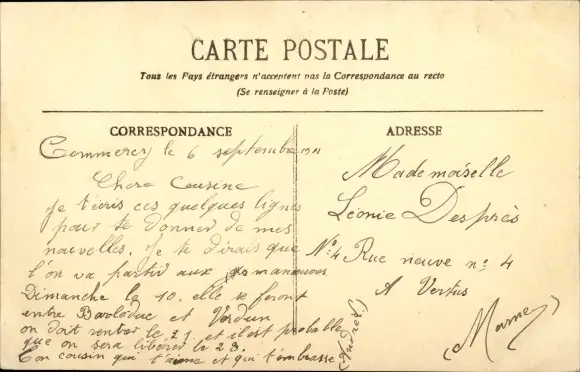 CARTE POSTALE
Tous les Pays étrangers n'acceptent pas la Correspondance au recto
(Se renseigner à la Poste)
CORRESPONDANCE
Commercy le 6 septembre 1911
Chere Cousine
Je t'écris ces quelques lignes
pour te donner de mes
nouvelles. Je te dirais que
l'on va partir aux manœuvres
Dimanche le 10. elle se feront
entre Barleduc et Verdun
on doit rentrer le 21 et il est probable
que on sera libérer le 23.
Ton cousin qui t'aime et qui t'embrasse
(André)
ADRESSE
Mademoiselle
Léonie Després
N° 4 Rue neuve n: 4
A Vertus
(Marne)